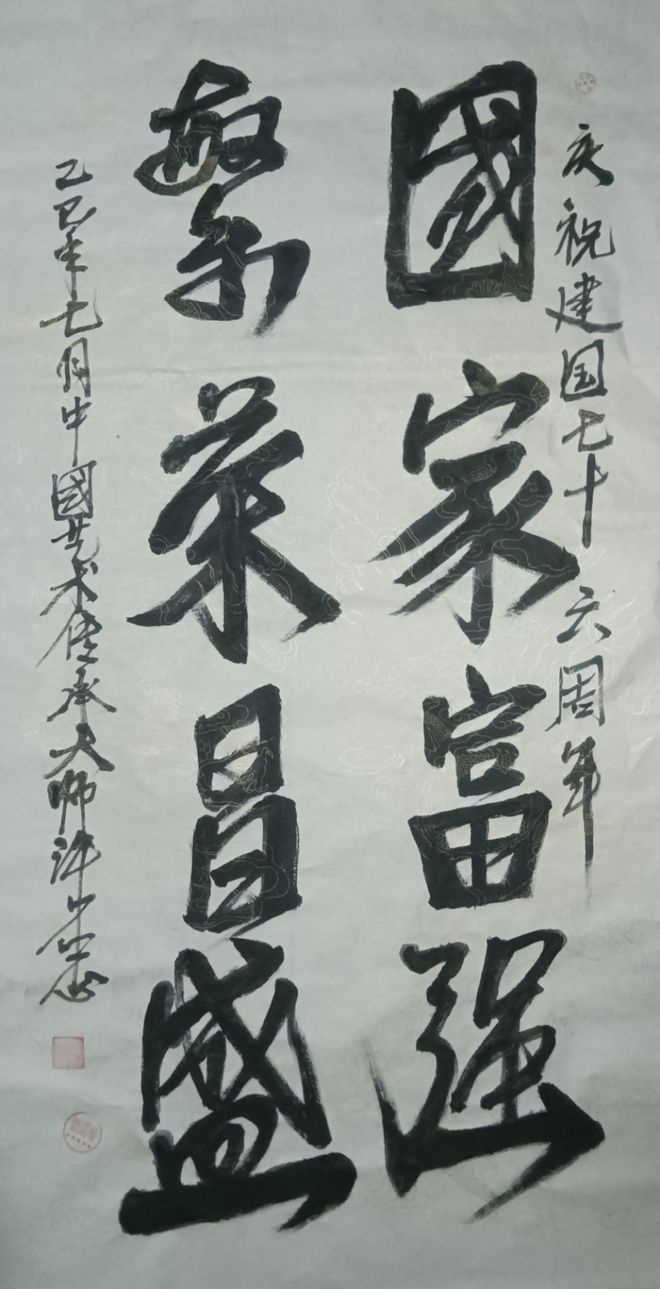 庆祝建国七十六周年
國家富强
繁荣昌盛
乙巳年七月中國艺术傳承大师许